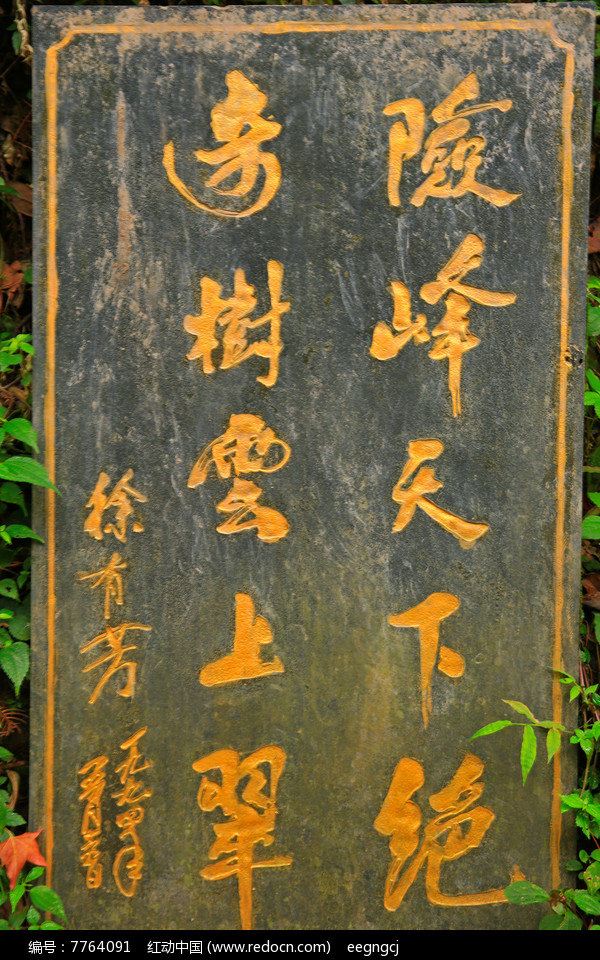 險峰天下絕
奇樹雲上翠
徐有芳
一九九四年
编号：7764091 红动中国 (www.redocn.com) eegngcj